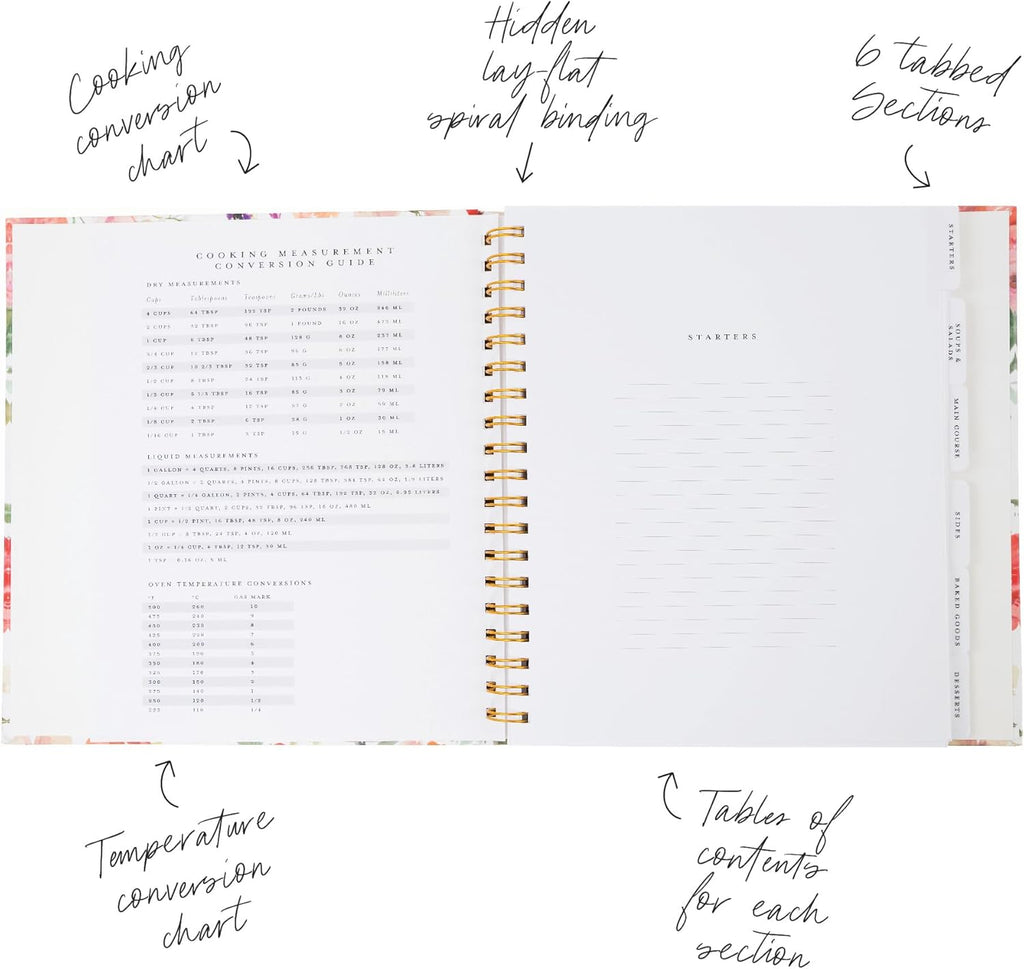 Cooking
conversion
chart
Hidden
lay-flat
spiral binding
6 tabbed
Sections
COOKING MEASUREMENT
CONVERSION GUIDE
DRY MEASUREMENTS
Cups Tablespoons Teaspoons Grams/Lbs Ounces Milliliters
4 CUPS 64 TBSP 192 TSP 2 POUNDS 32 OZ 946 ML
2 CUPS 32 TBSP 96 TSP 1 POUND 16 OZ 473 ML
1 CUP TBSP 48 TSP 128 G 8 OZ 237 ML
3/4 CUP 12 TBSP 36 TSP 95 G 6 OZ 177 ML
2/3 CUP 10 2/3 TBSP 32 TSP 85 G 5 OZ 158 ML
1/2 CUP 8 TBSP 24 TSP G 4 OZ 118 ML
1/3 CUP 5 1/3 TBSP 16 TSP G 3 OZ 79 ML
1/4 CUP 4 TBSP 12 TSP G 2 OZ 59 ML
1/8 CUP 2 TBSP 6 TSP G 1 OZ 30 ML
1/16 CUP 1 TBSP 3 TSP 15 G 1/2 OZ 15 ML
LIQUID MEASUREMENTS
1 GALLON = 4 QUARTS, 8 PINTS, 16 CUPS, 256 TBSP, 768 TSP, 128 OZ, 3.8 LITERS
1/2 GALLON = 2 QUARTS, 4 PINTS, 8 CUPS, 128 TBSP, 384 TSP, 64 OZ, 1.9 LITERS
1 QUART = 1/4 GALLON, 2 PINTS, 4 CUPS, 64 TBSP, 192 TSP, 32 OZ, 0.95 LITERS
1 PINT = 1/2 QUART, 2 CUPS, 32 TBSP, 96 TSP, 16 OZ, 480 ML
1 CUP = 1/2 PINT, 16 TBSP, 48 TSP, 8 OZ, 240 ML
1/2 CUP = 8 TBSP, 24 TSP, 4 OZ, 120 ML
1 OZ = 1/4 CUP, 4 TBSP, 12 TSP, ML
1 TSP = OZ, 5 ML
OVEN TEMPERATURE CONVERSIONS
°F °C GAS MARK
500 260 10
475 240 9
450 230 8
425 220 7
400 200 6
375 190 5
350 180 4
325 170 3
300 150 2
275 140 1
250 120 1/2
225 110 1/4
STARTERS
STARTERS
SOUPS &
SALADS
MAIN COURSE
SIDES
BAKED GOODS
DESSERTS
Temperature
conversion
chart
Tables of
contents
for each
section